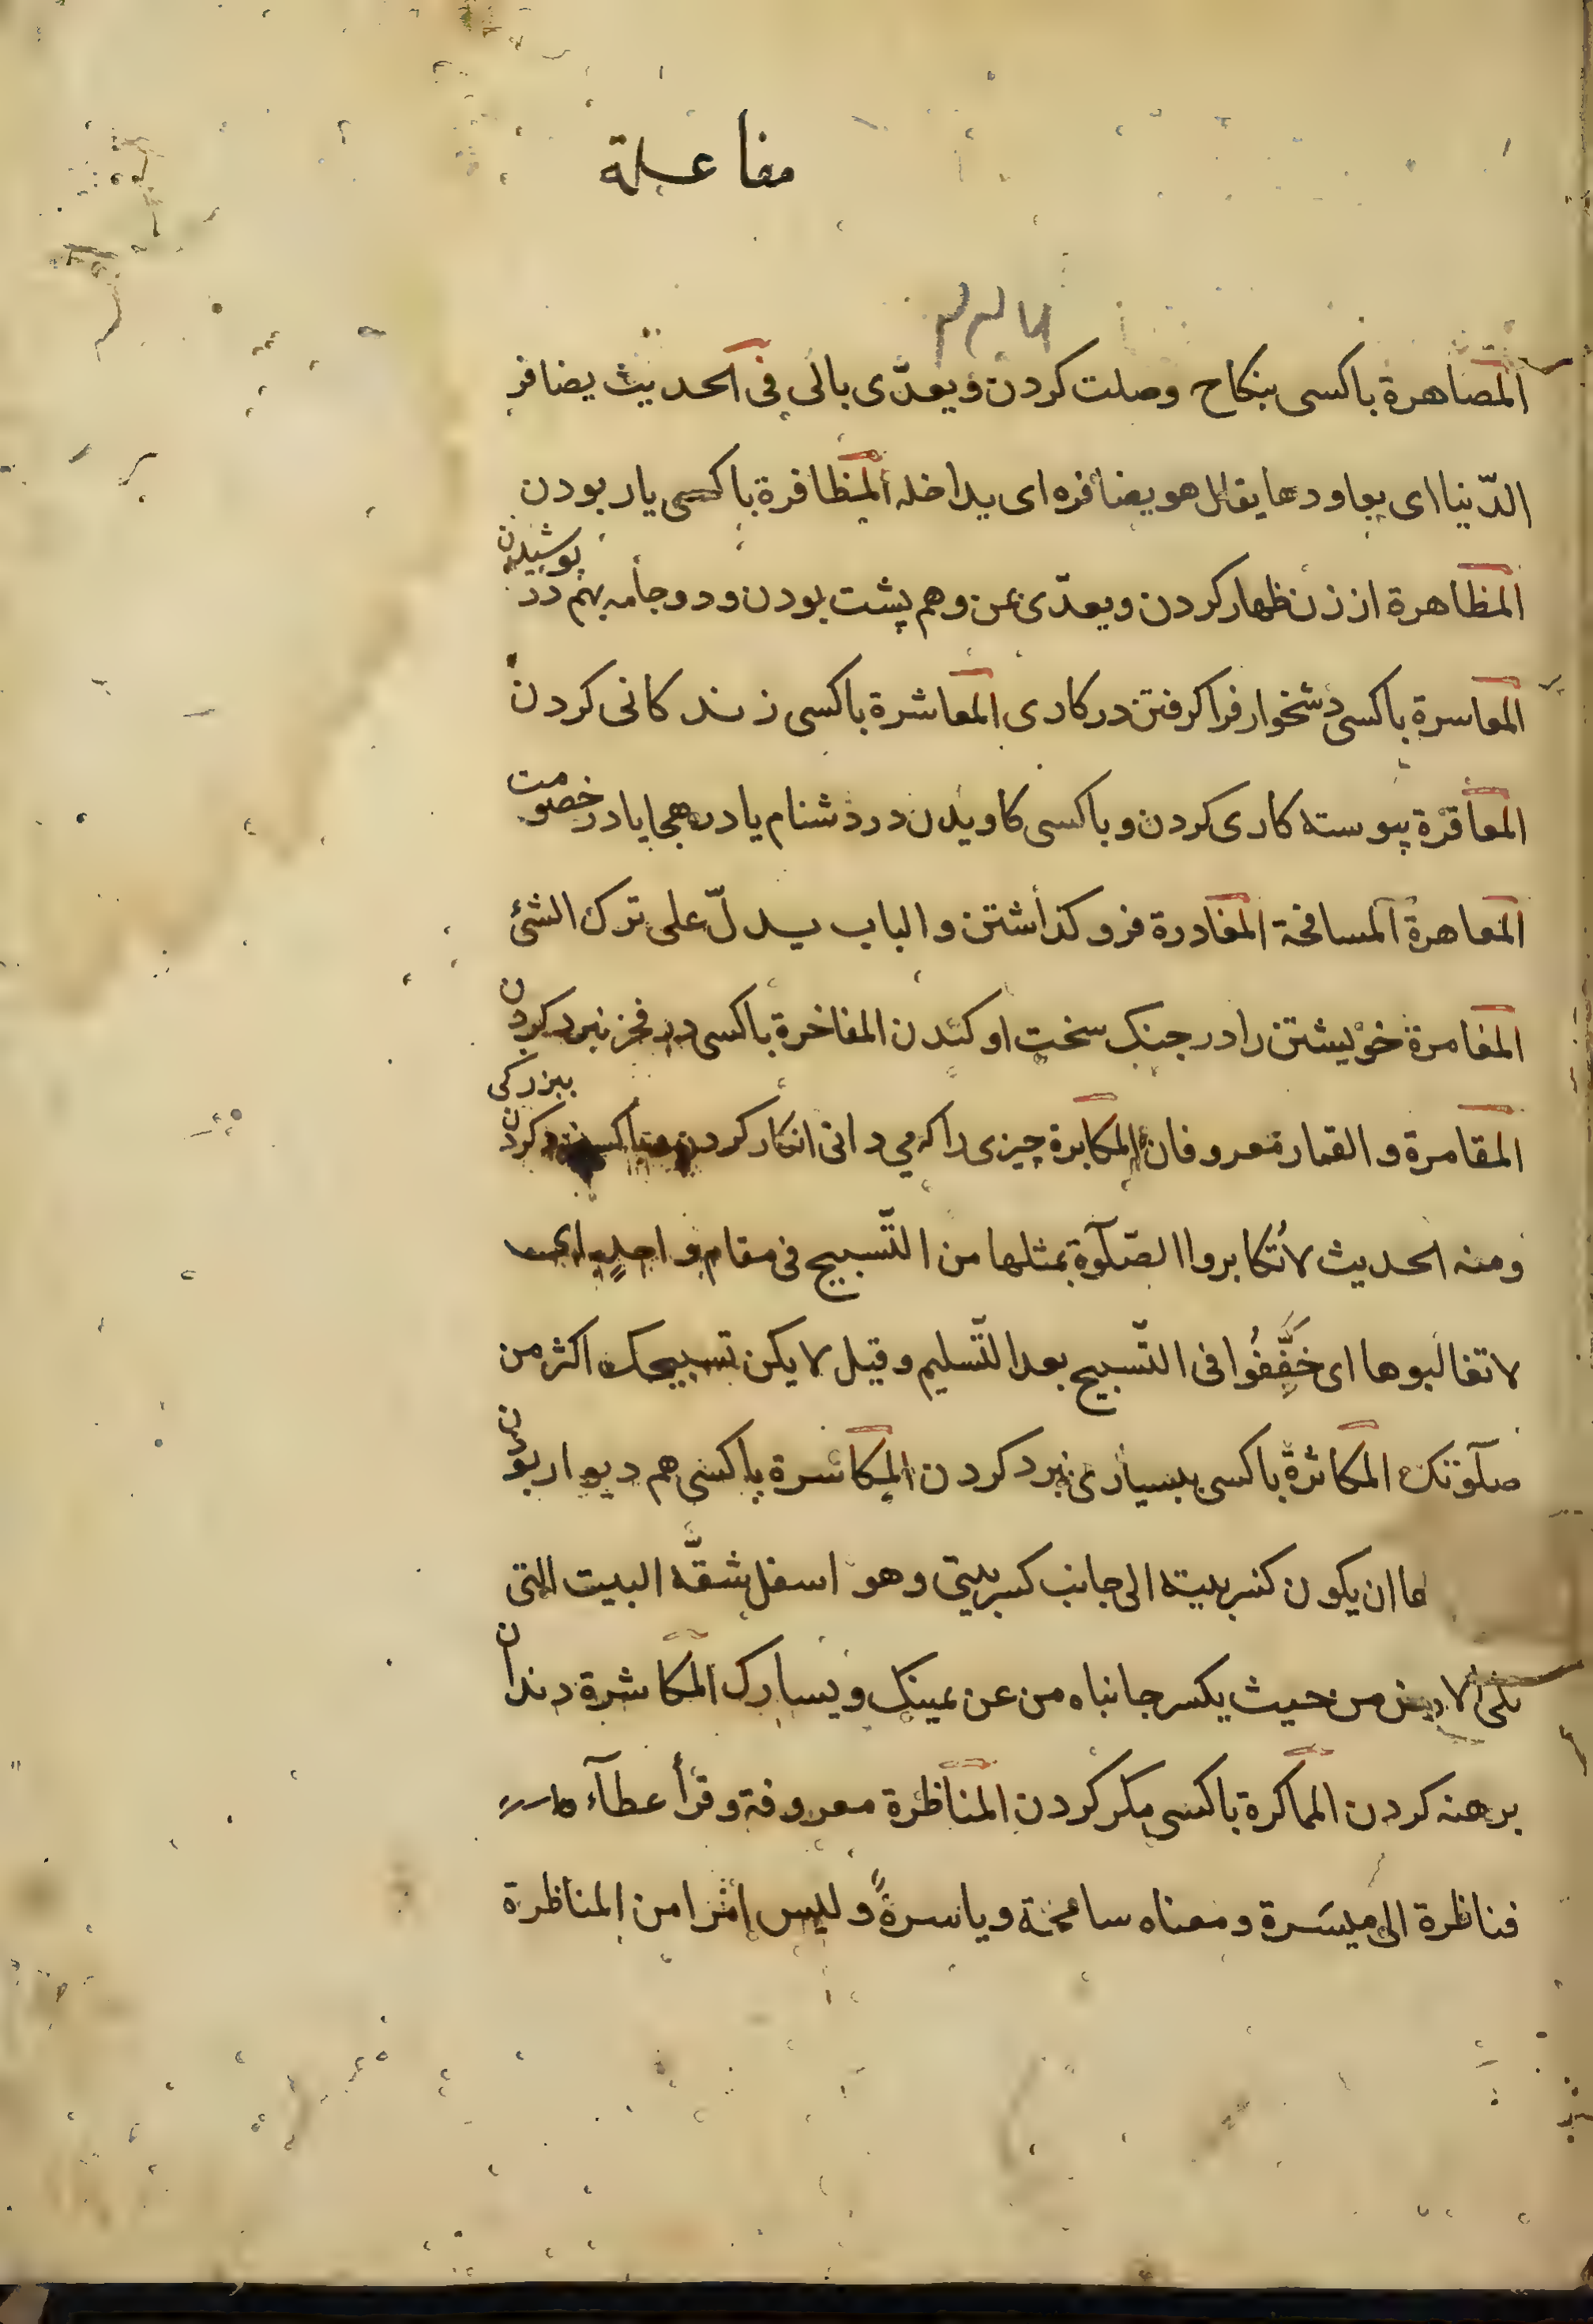 مفاعلة
المصاهرة باكسی بنكاح وصلت كردن ويعدّى بالى فى الحديث يضافر
الدّنيا اى يعاودها يقال هو يضافره اى يداخله المظافرة باكسی يار بودن
المظاهرة از زن ظهار كردن ويعدّى بمن وهم پشت بودن ودو جامه بهم در پوشيدن
المعاسرة باكسی دشخوار فرا كرفتن در كاری المعاشرة باكسی زندكانی كردن
المعاقرة پيوسته كاری كردن وباكسی كاويدن در دشنام يا در هجا يا در خصومت
المعاهرة المسافحة المغادرة فرو كذاشتن والباب يدلّ على ترك الشئ
المغامرة خويشتن را در جنك سخت اوكندن المفاخرة باكسی در فخر نبرد كردن
المقامرة والقمار معروفان المكابرة چيزی را كه می دانی انكار كردن وباكسی ببزركی نبرد كردن
ومنه الحديث لا تُكابروا الصّلوة بمثلها من التّسبيح فى مقام واحدٍ اى
لا تغالبوها اى خَفِّفُوا فى التّسبيح بعد التّسليم وقيل لا يكن تسبيحك اكثر من
صلوتك المكاثرة باكسی ببسياری نبرد كردن المكاسرة باكسی هم ديوار بودن
ما ان يكون كسر بيته الى جانب كسر بيتى وهو اسفل شقّه البيت التى
تلى الارض من حيث يكسر جانباه من عن يمينك ويسارك المكاشرة دندان
برهنه كردن المماكرة باكسی مكر كردن المناظرة معروفة وقرأ عطآء
فناظرة الى ميسَرة ومعناه سامحة وياسرةً وليس امرا من المناظرة